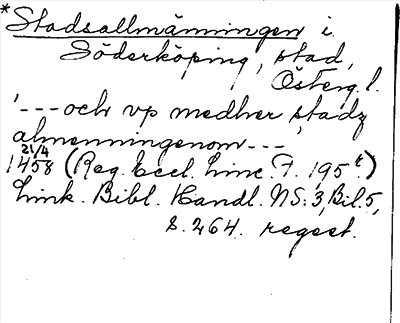 * Stadsallmänningen i
Söderköping, stad,
Österg. l.
'---och vp medher stadz
almenningenom---'
21/4
1458 (Reg. Eccl. Linc. F. 195 t.)
Link. Bibl. Handl. NS: 3, Bil. 5,
s. 264. regest.